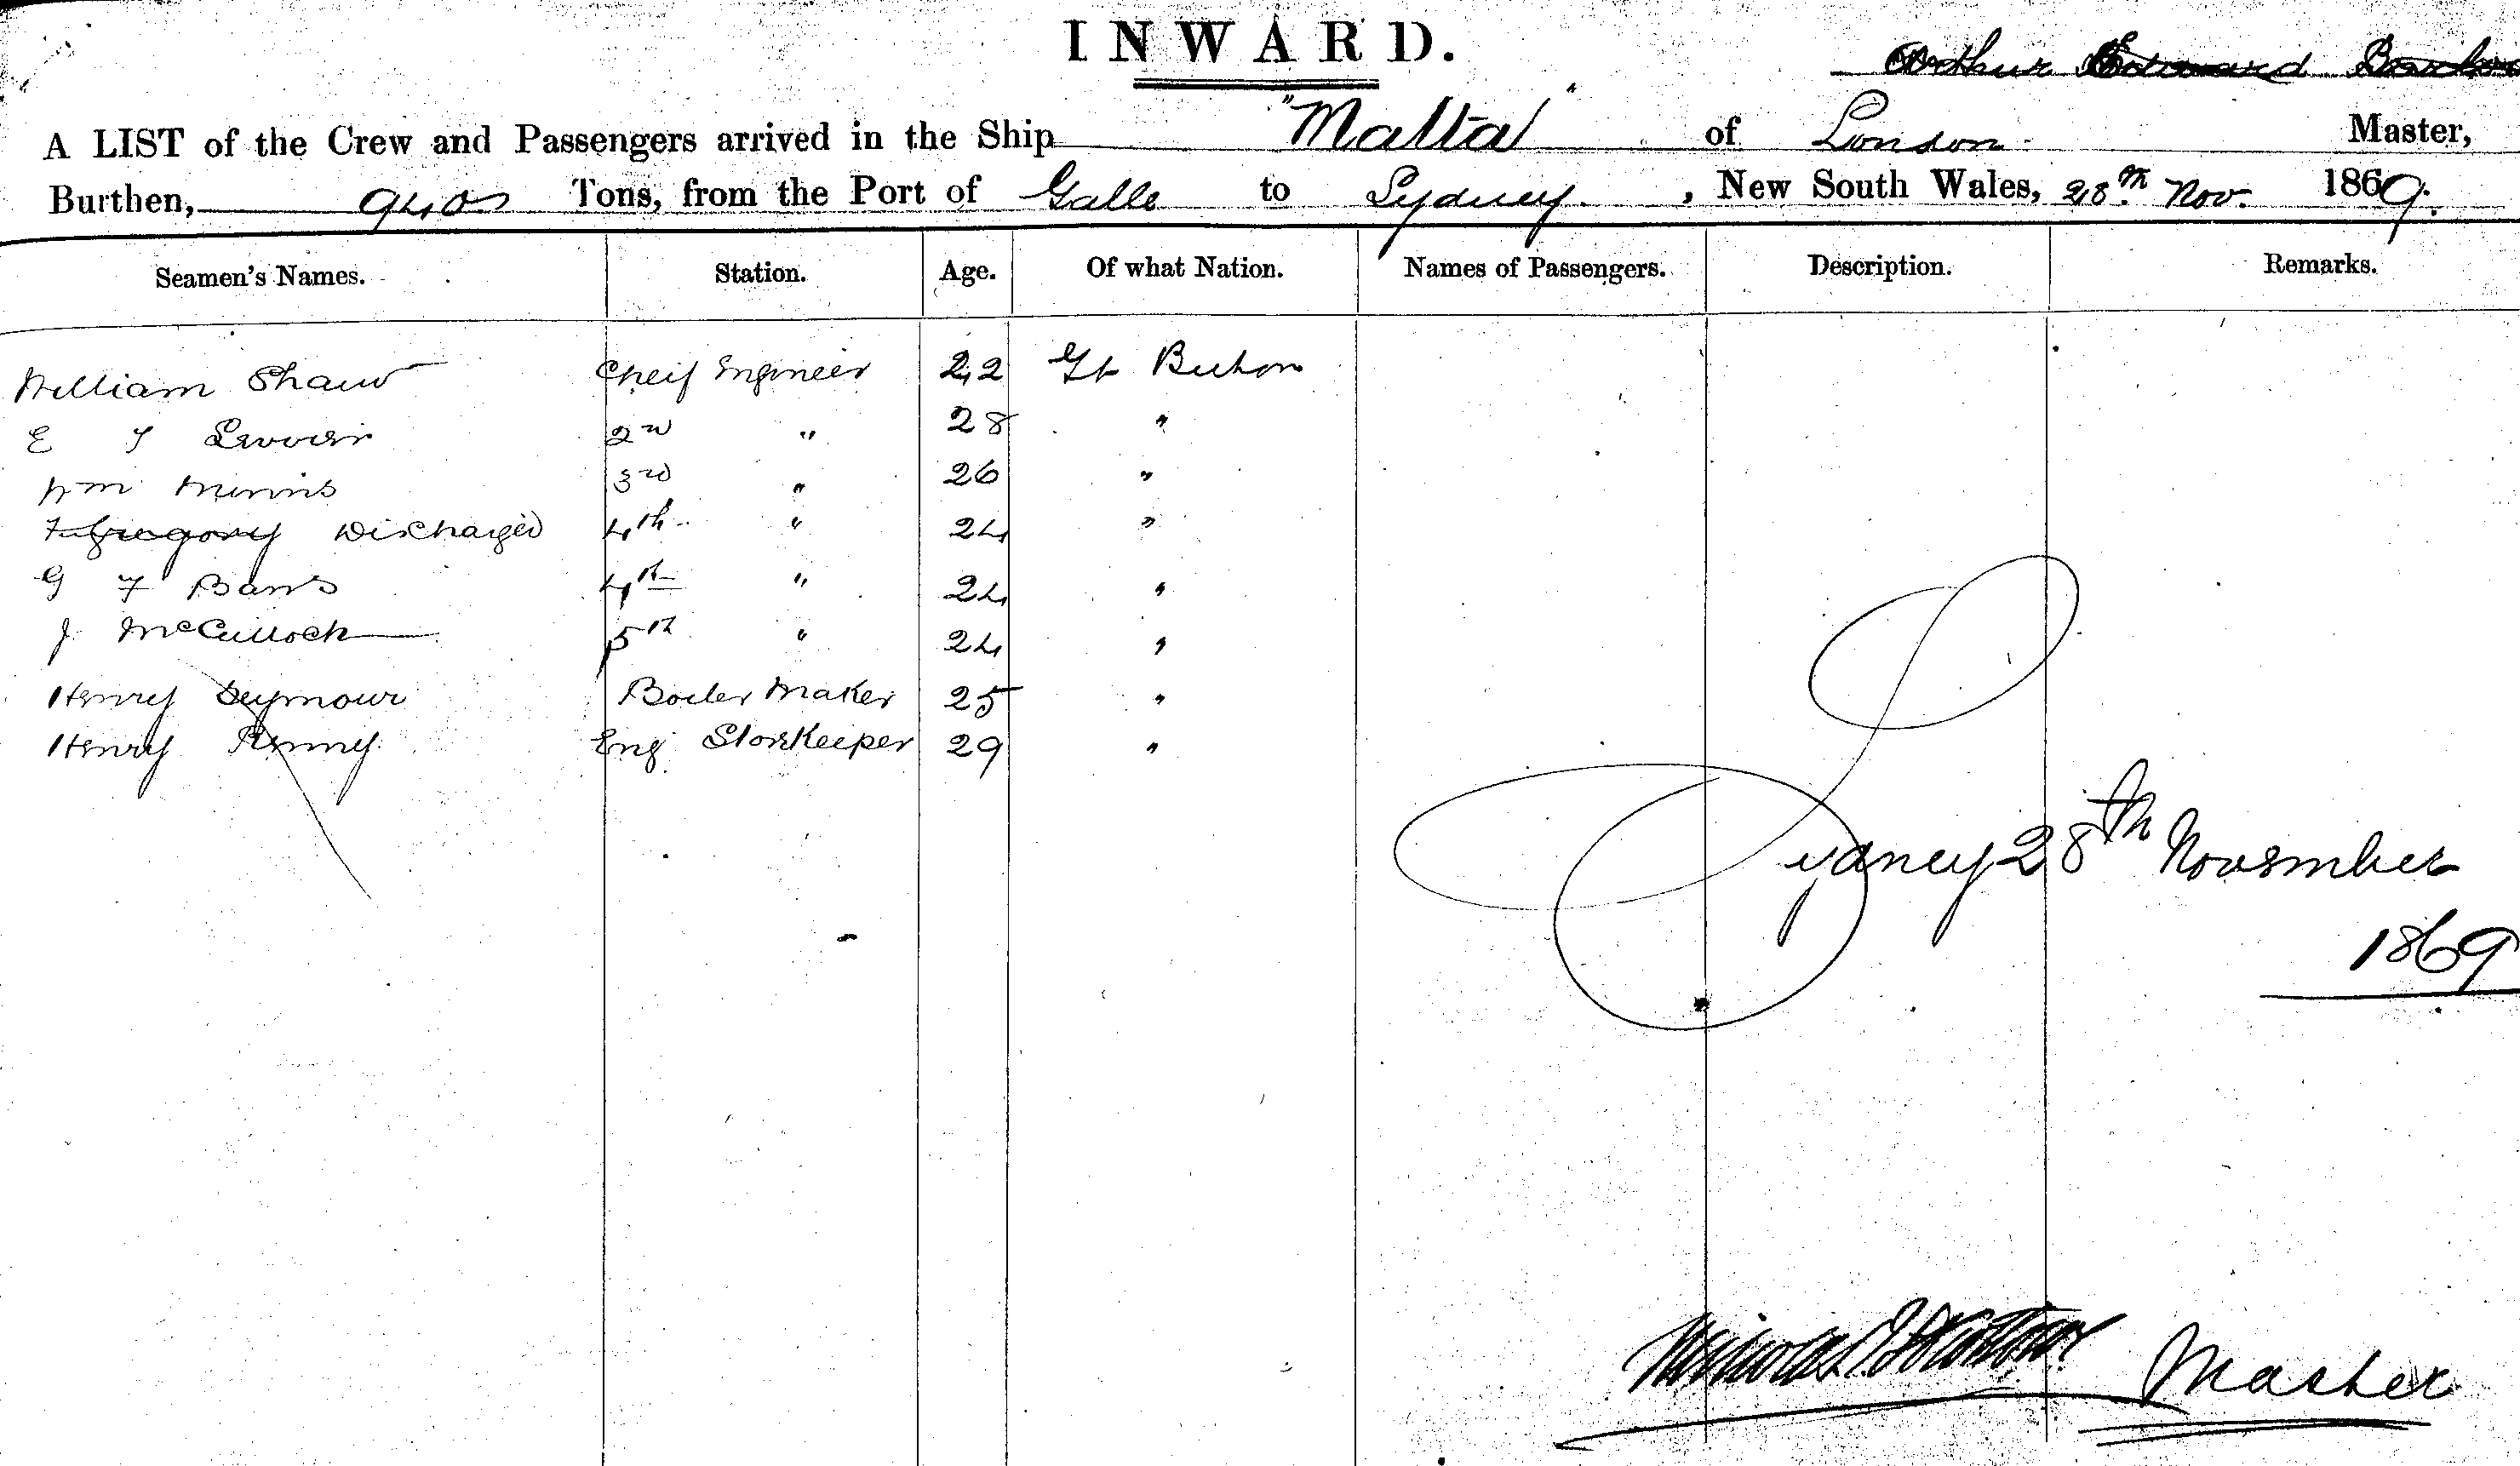 INWARD.
Arthur
A LIST of the Crew and Passengers arrived in the Ship "Malta" of London Master,
Burthen, Tons, from the Port of Galle to Sydney. , New South Wales, 28th Nov. 1869.
Seamen's Names. Station. Age. Of what Nation. Names of Passengers. Description. Remarks.
William Shaw Cheif Engineer 42 Gt Britton
E 2nd " 28 "
Wm 3rd " 26 "
F Gregory Discharged 4th " 24 "
G F 4th " 24 "
J McCullock 5th " 24 "
Henry Seymour Boiler Maker 25 "
Henry Penny Eng Storkeeper 29 "
Sydney 28th November
1869
Master